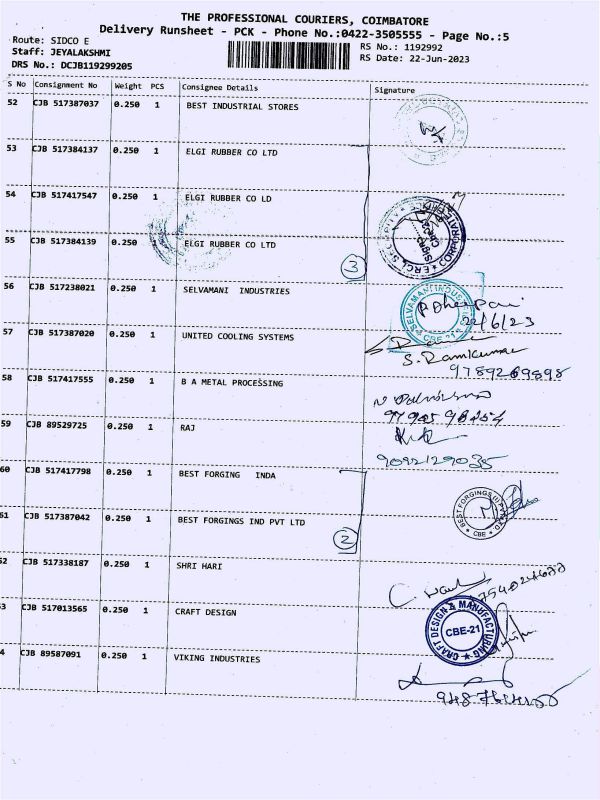 THE PROFESSIONAL COURIERS, COIMBATORE
Delivery Runsheet - PCK - Phone No.:0422-3505555 - Page No.:5
Route: SIDCO E
RS No.: 1192992
Staff: JEYALAKSHMI
RS Date: 22-Jun-2023
DRS No.: DCJB119299205
S No Consignment No Weight PCS Consignee Details Signature
52 CJB 517387037 0.250 1 BEST INDUSTRIAL STORES
53 CJB 517384137 0.250 1 ELGI RUBBER CO LTD
54 CJB 517417547 0.250 1 ELGI RUBBER CO LD
55 CJB 517384139 0.250 1 ELGI RUBBER CO LTD
3
56 CJB 517238021 0.250 1 SELVAMANI INDUSTRIES
SELVAMANI INDUSTRIES
CBE
22/6/23
57 CJB 517387020 0.250 1 UNITED COOLING SYSTEMS
S. Ramkumar
9789269898
58 CJB 517417555 0.250 1 B A METAL PROCESSING
59 CJB 89529725 0.250 1 RAJ
9092129035
60 CJB 517417798 0.250 1 BEST FORGING INDA
BEST FORGINGS (I) PVT LTD
CBE
61 CJB 517387042 0.250 1 BEST FORGINGS IND PVT LTD
2
52 CJB 517338187 0.250 1 SHRI HARI
3 CJB 517013565 0.250 1 CRAFT DESIGN
CRAFT DESIGN & MANUFACTURING
CBE-21
4 CJB 89587091 0.250 1 VIKING INDUSTRIES